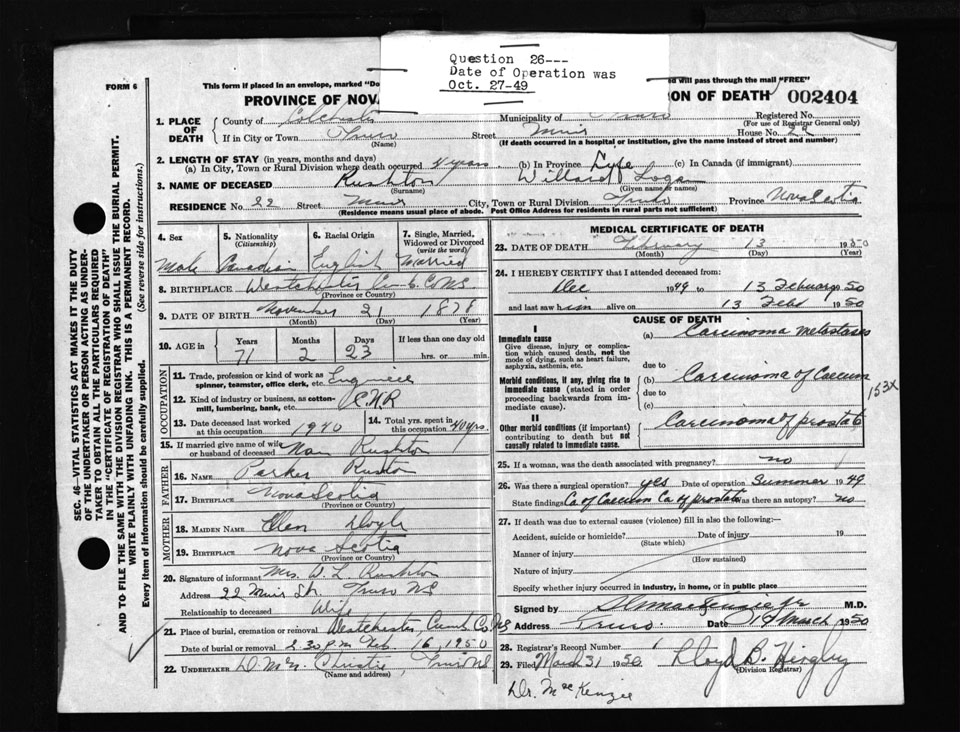 Question 26---
Date of Operation was
Oct. 27-49
FORM 6
This form if placed in an envelope, marked "Do
ed will pass through the mail "FREE"
PROVINCE OF NOV
ION OF DEATH 002404
1. PLACE OF DEATH
County of Colchester Municipality of Truro Registered No.
(For use of Registrar General only)
If in City or Town Truro Street Muir House No. 22
(Name) (If death occurred in a hospital or institution, give the name instead of street and number)
2. LENGTH OF STAY (in years, months and days)
(a) In City, Town or Rural Division where death occurred 4 years (b) In Province Life (c) In Canada (if immigrant)
3. NAME OF DECEASED Rushton Willard Logan
(Surname) (Given name or names)
RESIDENCE No. 22 Street Muir City, Town or Rural Division Truro Province Nova Scotia
(Residence means usual place of abode. Post Office Address for residents in rural parts not sufficient)
4. Sex 5. Nationality 6. Racial Origin 7. Single, Married,
(Citizenship) Widowed or Divorced
(write the word)
Male Canadian English Married
8. BIRTHPLACE Westchester Cumb. Co NS
(Province or Country)
9. DATE OF BIRTH November 21 1878
(Month) (Day) (Year)
10. AGE in Years Months Days If less than one day old
71 2 23 hrs. or min.
OCCUPATION
11. Trade, profession or kind of work as
spinner, teamster, office clerk, etc.
12. Kind of industry or business, as cotton-
mill, lumbering, bank, etc. C.N.R
13. Date deceased last worked at this occupation 1940 14. Total yrs. spent in this occupation 40 yrs.
15. If married give name of wife
or husband of deceased Rushton
FATHER
16. Name Parker Rushton
17. Birthplace Nova Scotia
(Province or Country)
MOTHER
18. MAIDEN NAME Ellen Doyle
19. BIRTHPLACE Nova Scotia
(Province or Country)
20. Signature of informant Mrs. W. L. Rushton
Address 22 Muir St. Truro NS
Relationship to deceased Wife
21. Place of burial, cremation or removal Westchester Cumb Co. NS
Date of burial or removal 2.30 p.m. Feb. 16, 1950
22. UNDERTAKER Christie Truro NS
(Name and address)
MEDICAL CERTIFICATE OF DEATH
23. DATE OF DEATH February 13 1950
(Month) (Day) (Year)
24. I HEREBY CERTIFY that I attended deceased from:
Dec 1949 to 13 February 1950
and last saw him alive on 13 Feb 1950
CAUSE OF DEATH
I
Immediate cause
Give disease, injury or complica-
tion which caused death, not the
mode of dying, such as heart failure,
asphyxia, asthenia, etc.
(a) Carcinoma metastases
due to
Morbid conditions, if any, giving rise to
immediate cause (stated in order
proceeding backwards from im-
mediate cause).
(b) Carcinoma of Caecum
153X
due to
(c)
II
Other morbid conditions (if important)
contributing to death but not
causally related to immediate cause.
Carcinoma of prostate
25. If a woman, was the death associated with pregnancy? no
26. Was there a surgical operation? yes Date of operation Summer 1949
State findings Ca of Caecum Ca of prostate Was there an autopsy? no
27. If death was due to external causes (violence) fill in also the following:—
Accident, suicide or homicide? Date of injury 19
(State which)
Manner of injury
(How sustained)
Nature of injury
Specify whether injury occurred in industry, in home, or in public place
Signed by M.D.
Address Truro Date March 1950
28. Registrar's Record Number
29. Filed March 31 1950 Lloyd B.
(Division Registrar)
Dr. MacKenzie
SEC. 46—VITAL STATISTICS ACT MAKES IT THE DUTY
OF THE UNDERTAKER OR PERSON ACTING AS UNDER-
TAKER TO OBTAIN ALL THE PARTICULARS REQUIRED
IN THE "CERTIFICATE OF REGISTRATION OF DEATH"
AND TO FILE THE SAME WITH THE DIVISION REGISTRAR WHO SHALL ISSUE THE BURIAL PERMIT.
WRITE PLAINLY WITH UNFADING INK. THIS IS A PERMANENT RECORD.
Every item of information should be carefully supplied. (See reverse side for instructions.)